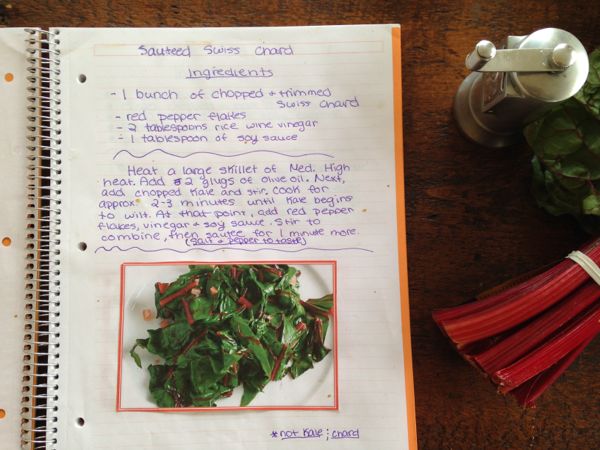 Sauteed Swiss Chard
Ingredients
- 1 bunch of chopped + trimmed
Swiss Chard
- red pepper flakes
- 2 tablespoons rice wine vinegar
- 1 tablespoon of soy sauce
Heat a large skillet of Med. High
heat. Add 2 glugs of olive oil. Next,
add chopped Kale and stir. Cook for
approx 2-3 minutes until Kale begins
to wilt. At that point, add red pepper
flakes, vinegar + soy sauce. Stir to
combine, then sautee for 1 minute more.
(Salt + pepper to taste)
*not Kale; chard